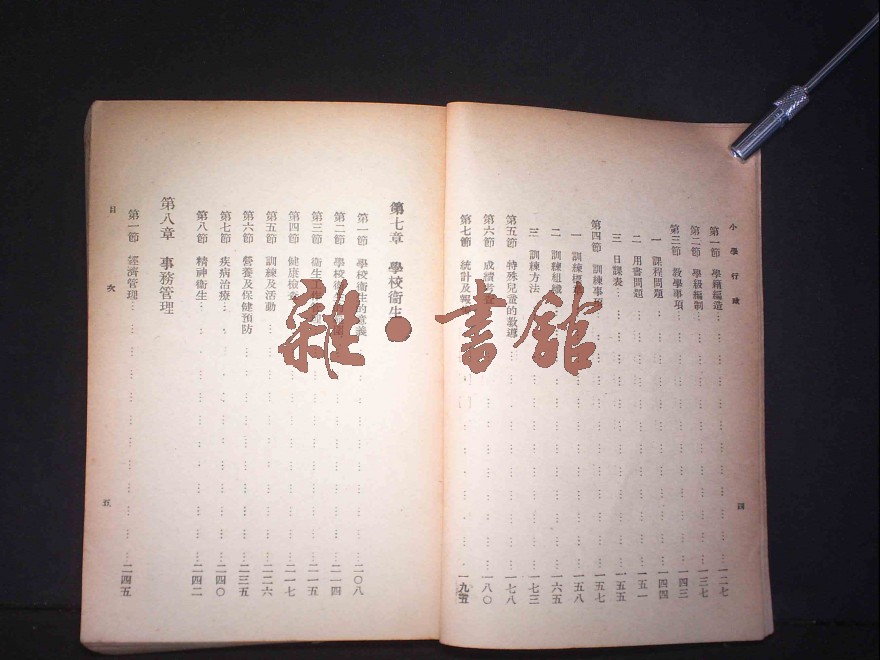 小學行政
第一節 學籍編造 一二七
第二節 學級編制 一三七
第三節 教學事項 一四三
一 課程問題 一四四
二 用書問題 一五一
三 日課表 一五五
第四節 訓練事項 一五七
一 訓練 一五八
二 訓練組織 一六五
三 訓練方法 一七三
第五節 特殊兒童的教導 一七八
第六節 成績考查 一八〇
第七節 統計及報 一九五
四
第七章 學校衞生
第一節 學校衞生的意義 二〇八
第二節 學校衞生 二一四
第三節 衞生 二一五
第四節 健康檢查 二一七
第五節 訓練及活動 二二六
第六節 營養及保健預防 二三五
第七節 疾病治療 二四〇
第八節 精神衞生 二四二
第八章 事務管理
第一節 經濟管理 二四五
目次
五
雜·書館